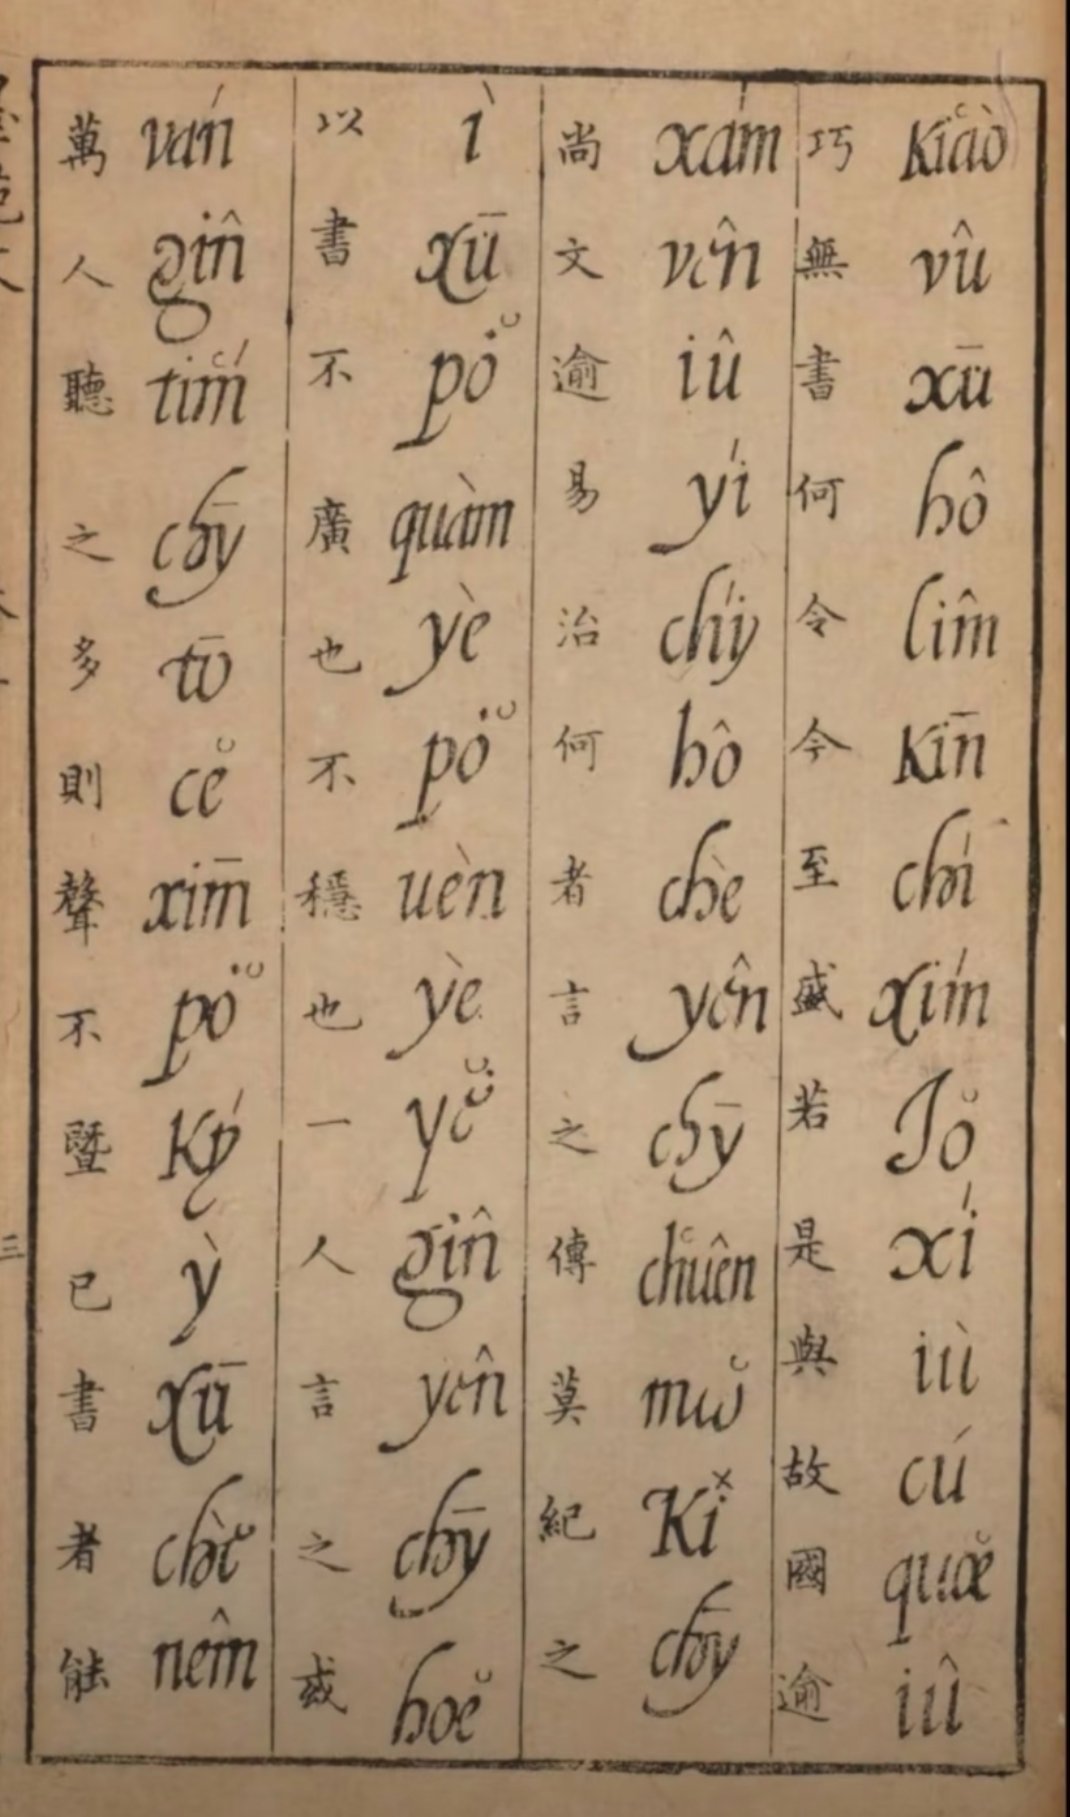 巧無書何令今至盛若是與故國逾
kiảò vû xū hô lim̂ kīn chí xím Jǒ xí iù cú quě iû
尚文逾易治何者言之傳莫紀之
xám vên iû yí chí hô chè yên chȳ chuên mǒ Kì chȳ
以書不廣也不穩也一人言之或
ì xū pǒ quàm yè pǒ uèn yè yě gin̂ yên chȳ hoě
萬人聽之多則聲不暨已書者能
ván gin̂ tím chȳ tō cě xim̄ pǒ Ký ỳ xū chè nem̂